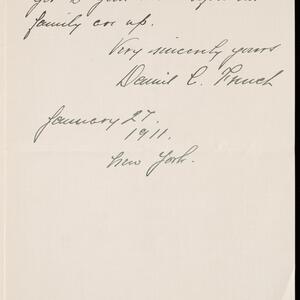 family car up.
Very sincerely yours
Daniel C. French
January 27.
1911.
New York.